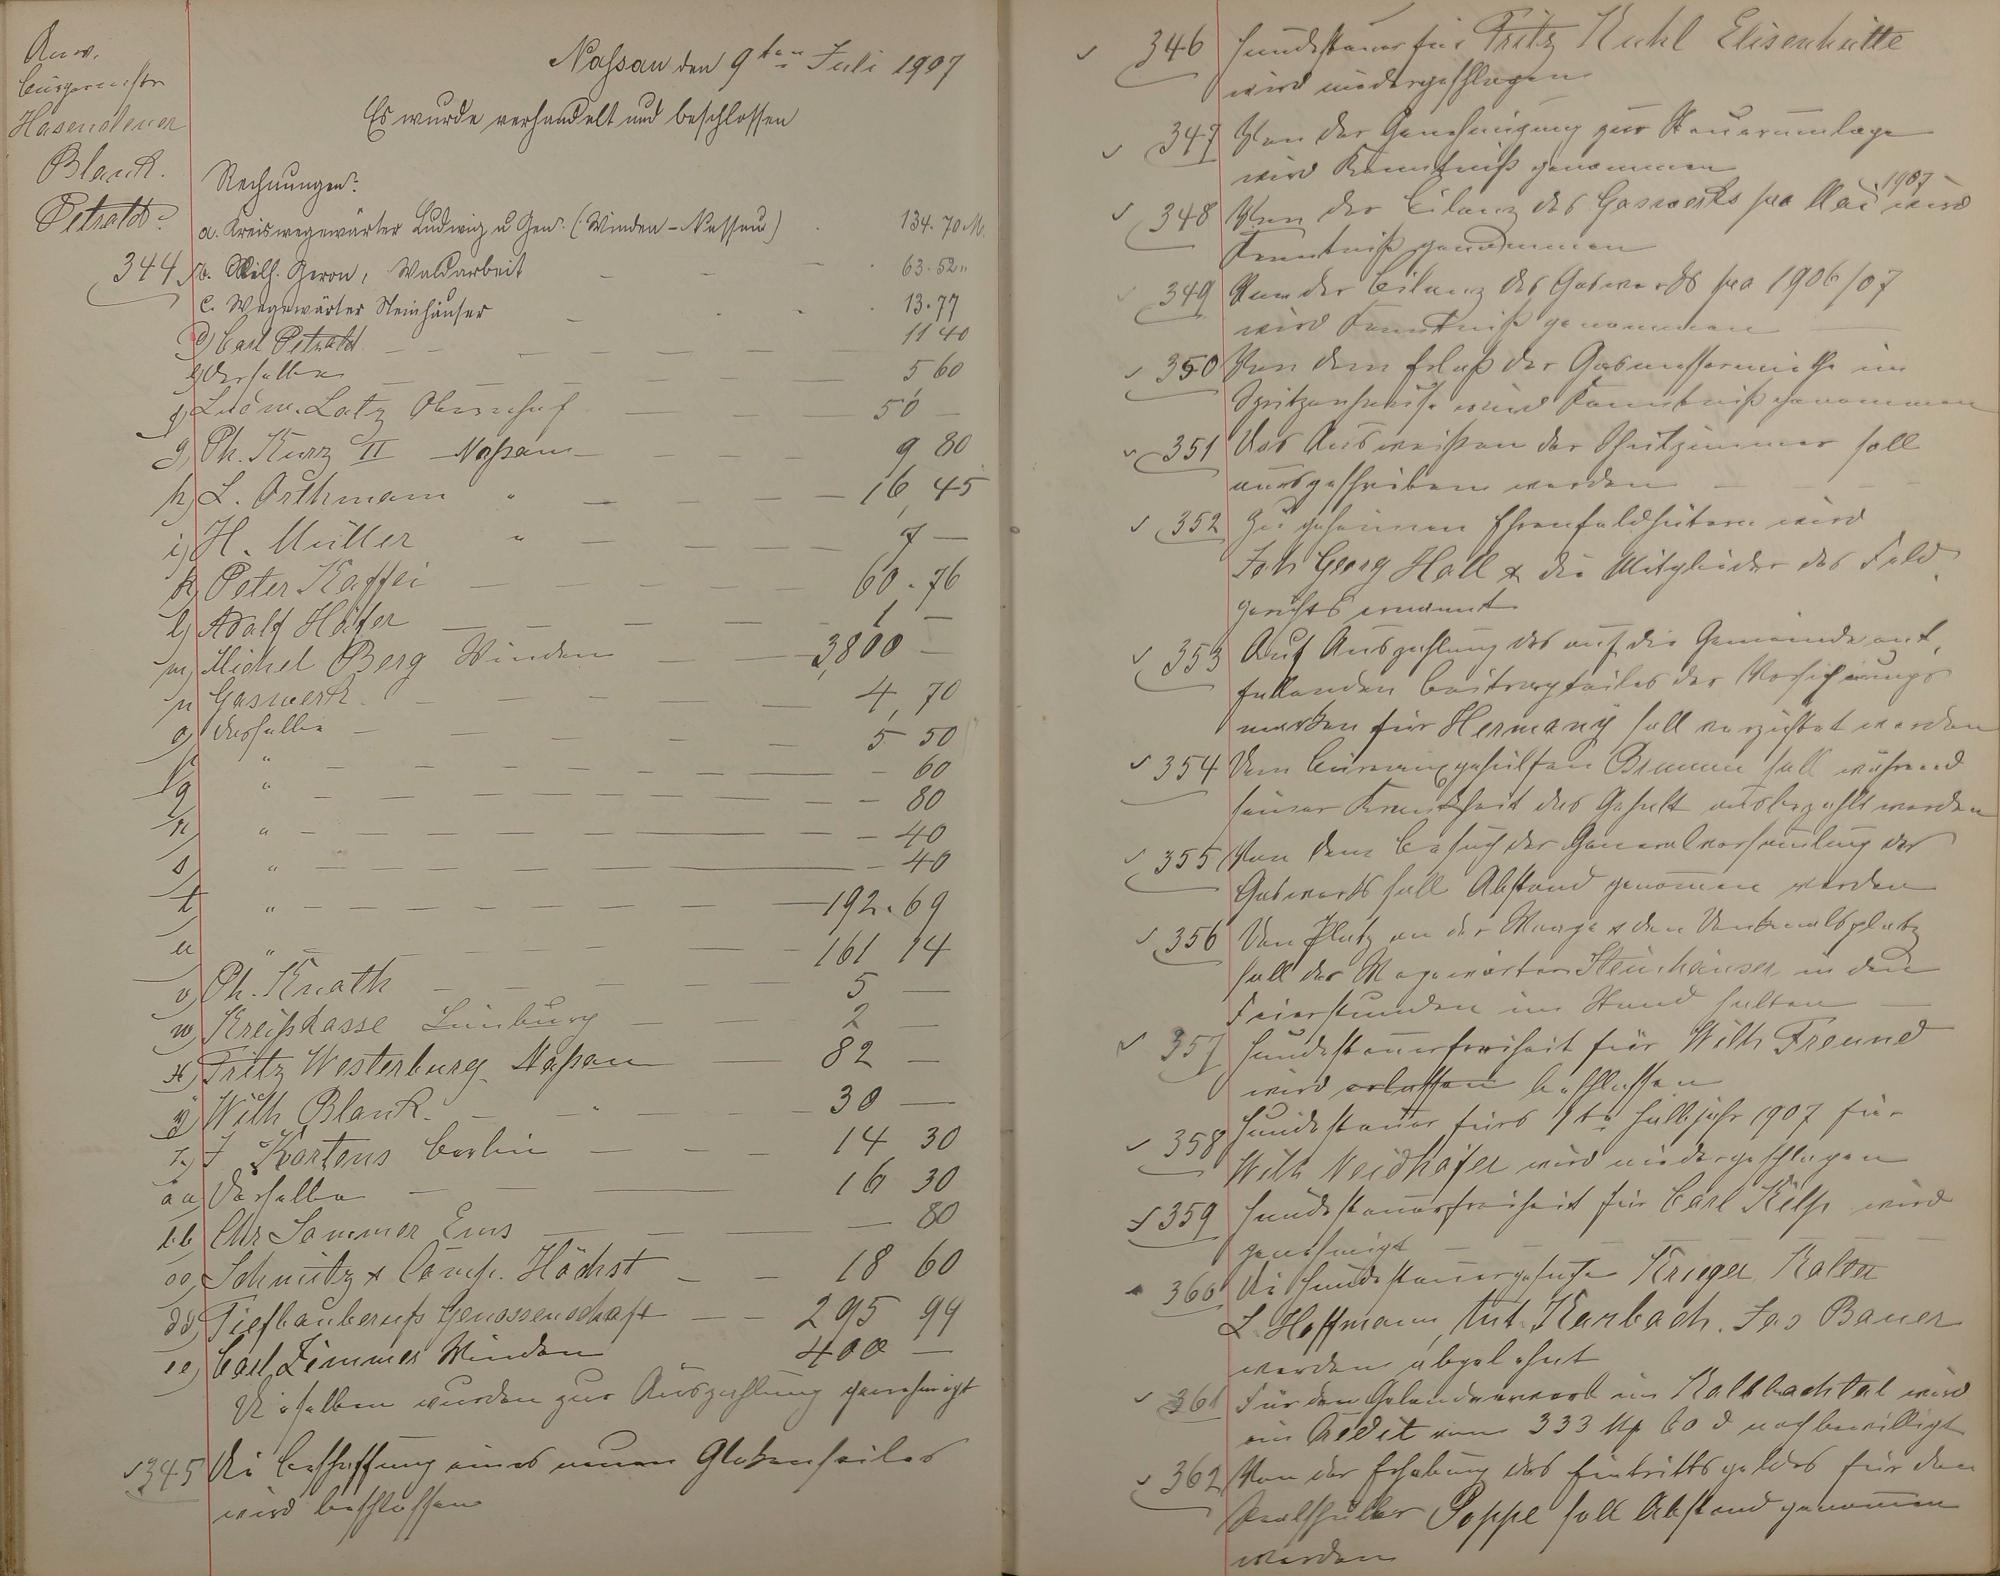 Anw.
Bürgermstr
Hasenclever
Blank.
Petraldt.
Naßau den 9ten Juli 1907
Es wurde verhandelt und beschlossen
Rechnungen:
a. Kreiswegewärter Ludwig u Gen. (Winden - Nassau) 134.70 M.
344 b. Wilh. Geron, Waldarbeit 63.52 "
c. Wegewärter Steinhäuser 13.77
d) Carl Petraldt 11 40
e) Derselbe 5 60
f) Ludw. Latz Obernhof 50 —
g) Ph. Kurz II Naßau 9 80
h) L. Orthmann " 16, 45
i) H. Müller " 7 —
k) Peter Kaffei 60. 76
l) Adolf Höfer 1 —
m) Michel Berg Winden 3,800 —
n) Gaswerk 4, 70
o) Dasselbe 5 50
p " 60
q " 80
r) " 40
s " 40
t " 192. 69
u " 161 14
v) Ph. Knoth 5 —
w) Kreißkasse Limburg 2 —
x) Fritz Westerburg Naßau 82 —
y) Wilh Blank. 30 —
z) J Kortens Berlin 14 30
aa) Derselbe 16 30
bb Chr Sommer Ems — 80
cc) Schmitz & Comp. Höchst 18 60
dd) Tiefbauberufs Genossenschaft 295 99
ee) Carl Zimmer Winden 400 —
Dieselben wurden zur Auszahlung genehmigt
345 Die Beschaffung eines neuen Glokenseiles
wird beschlossen
346 Hundesteuer für Fritz Kuhl Elisenhütte
wird niedergeschlagen
347 Von der Genehmigung zur Steuerumlage
wird Kenntniß genommen
348 Von der Bilanz des Gaswerks pro Mai 1907 wird
Kenntniß genommen
349 Von der Bilanz des Gaswerks pro 1906/07
wird Kenntniß genommen
350 Von dem Erlaß der Gasmessermiethe im
Spritzenhause wird Kenntniß genommen
351 Das Ausweißen der Schulzimmer soll
ausgeschrieben werden
352 Zu geheimen Ehrenfeldhütern wird
Joh Georg Holl & die Mitglieder des Feld-
gerichts ernannt
353 Auf Auszahlung des auf die Gemeinde ent-
fallenden Beitragteiles der Versicherungs
marken für Hermany soll verzichtet werden
354 Dem Büreaugehülfen Bremm soll während
seiner Krankheit das Gehalt ausbezahlt werden
355 Von dem Besuch der Generalversamlung des
Gaswerks soll Abstand genommen werden
356 Den Platz an der Waage & den Denkmalsplatz
soll der Wegewärter Steinhäuser in den
Feierstunden im Stand halten
357 Hundesteuerfreiheit für Wilh Freund
wird erlassen beschlossen
358 Hundesteuer fürs 1te Halbjahr 1907 für
Wilh Neidhöfer wird niedergeschlagen
359 Hundesteuerfreiheit für Carl Kilp wird
genehmigt
360 Die Hundesteuergesuche Krieger, Kalter
L. Hoffmann, Ant. Karbach. Jos Bauer
werden abgelehnt
361 Für den Gelanderwerb im Kaltbachtal wird
ein Credit von 333 M 60 d nachbewilligt
362 Von der Erhebung des Eintrittsgeldes für den
Realschüler Poppe soll Abstand genommen
werden